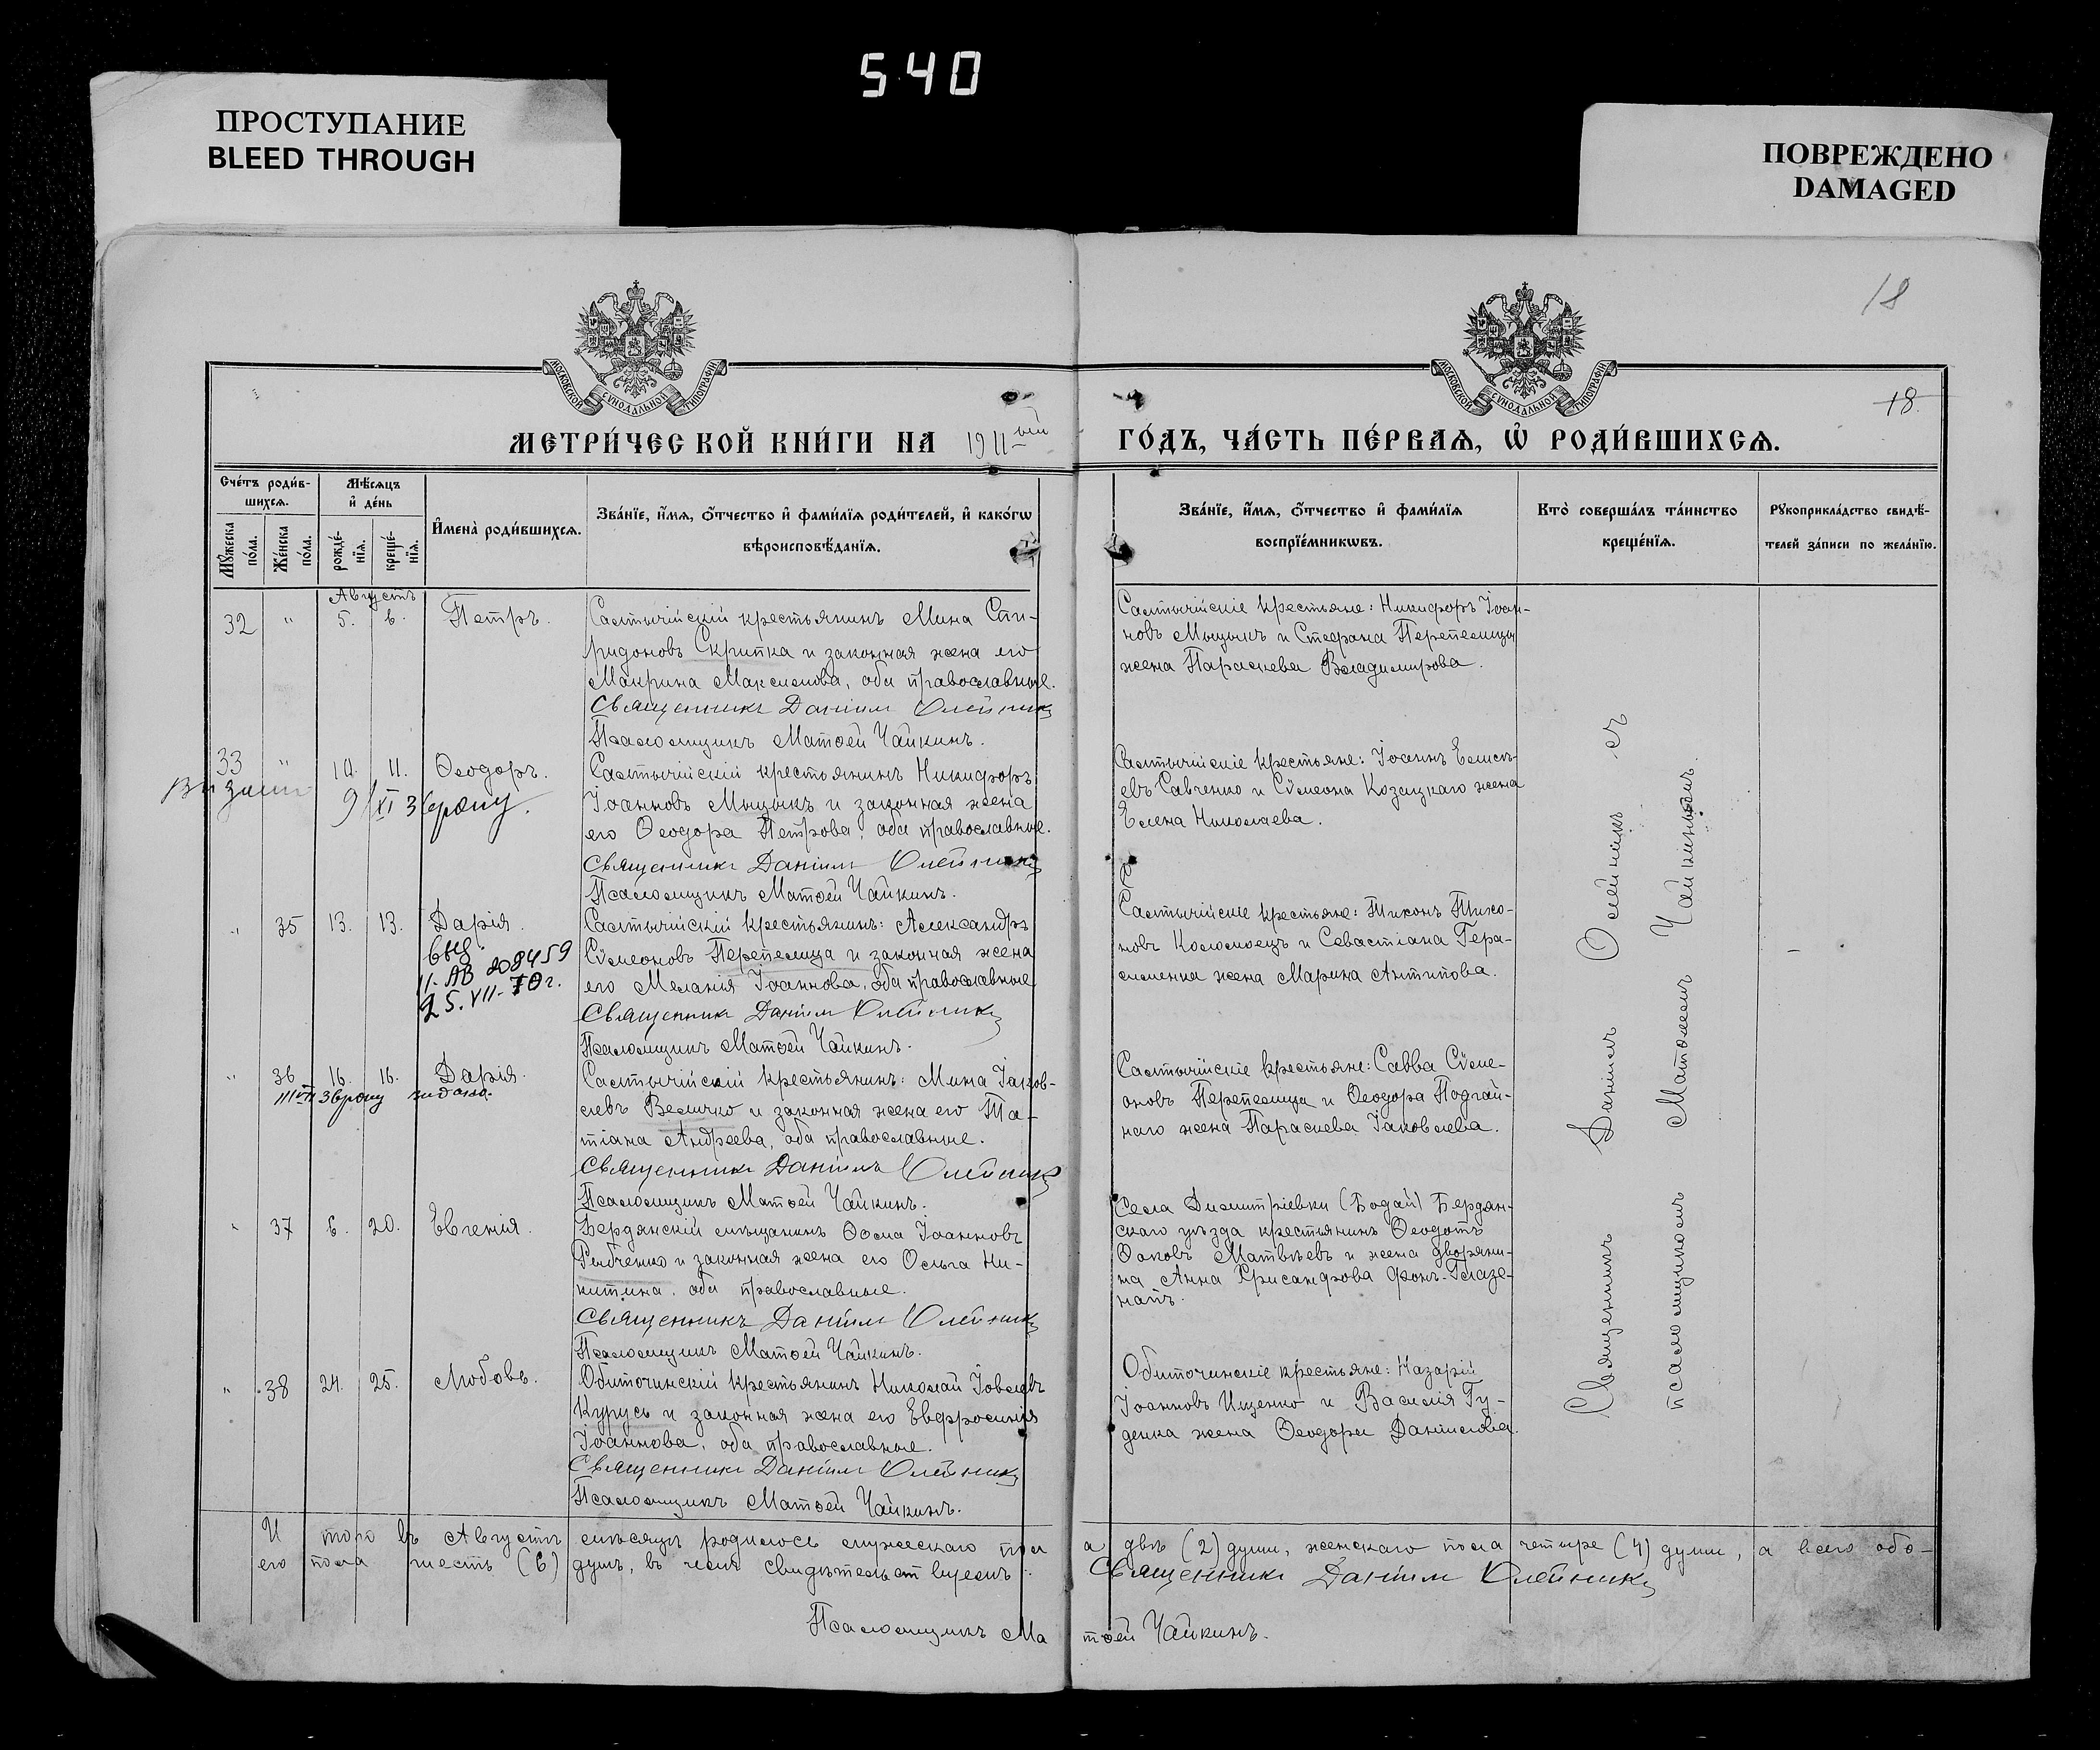 540
ПРОСТУПАНИЕ
BLEED THROUGH
ПОВРЕЖДЕНО
DAMAGED
18
18.
МОСКОВСКОЙ СѴНОДАЛЬНОЙ ТИПОГРАФІИ
МОСКОВСКОЙ СѴНОДАЛЬНОЙ ТИПОГРАФІИ
МЕТРИ́ЧЕСКОЙ КНИ́ГИ НА 1911-ый ГО́ДЪ, ЧА́СТЬ ПЕ́РВАѦ, Ѽ РОДИ́ВШИХСѦ.
Сче́тъ роди́в-
шихсѧ.
Мꙋ́жеска по́ла.
Же́нска по́ла.
Мѣ́сѧцъ
и҆ де́нь
рожде́-
нїѧ.
креще́-
нїѧ.
И҆мена̀ роди́вшихсѧ.
Зва́нїе, и҆́мѧ, ѻ҆́тчество и҆ фами́лїѧ роди́телей, и҆ како́гѡ
вѣроисповѣ́данїѧ.
Зва́нїе, и҆́мѧ, ѻ҆́тчество и҆ фами́лїѧ
воспрїе́мникѡвъ.
Кто̀ соверша́лъ та́инство
креще́нїѧ.
Рꙋкоприкла́дство свидѣ́-
телей за́писи по жела́нїю.
Августъ
32 " 5. 6. Петръ.
Салтычійскій крестьянинъ Мина Спи-
ридоновъ Скрипка и законная жена его
Макрина Максимова, оба православные.
Священникъ Даніилъ Олейникъ
Псаломщикъ Матѳей Чайкинъ.
Салтычійскіе крестьяне: Никифоръ Іоан-
новъ Мыцыкъ и Стефана Перепелицы
жена Параскева Владимирова.
33 " 10. 11. Ѳеодоръ.
9/XI з вроку.
Салтычійскій крестьянинъ Никифоръ
Іоанновъ Мыцыкъ и законная жена
его Ѳеодора Петрова, оба православные.
Священникъ Даніилъ Олейникъ
Псаломщикъ Матѳей Чайкинъ.
Салтычійскіе крестьяне: Іоаннъ Елисѣ-
евъ Савченко и Сѵмеона Козацкаго жена
Елена Николаева.
" 35 13. 13. Дарія.
выд.
II-АВ 808459
25.VII-70г.
Салтычійскій крестьянинъ: Александръ
Сѵмеоновъ Перепелица и законная жена
его Меланія Іоаннова, оба православные
Священникъ Даніилъ Олейникъ
Псаломщикъ Матѳей Чайкинъ.
Салтычійскіе крестьяне: Тихонъ Тихо-
новъ Коломоецъ и Севастіана Гера-
сименка жена Марина Антипова.
" 36 16. 16. Дарія.
Салтычійскій крестьянинъ: Мина Іаков-
левъ Величко и законная жена его Та-
тіана Андреева, оба православные.
Священникъ Даніилъ Олейникъ
Псаломщикъ Матѳей Чайкинъ.
Салтычійскіе крестьяне: Савва Сѵме-
оновъ Перепелица и Ѳеодора Подгай-
наго жена Параскева Іаковлева.
" 37 6. 20. Евгенія.
Бердянскій мѣщанинъ Ѳома Іоанновъ
Рыбченко и законная жена его Ольга Ни-
китина, оба православные.
Священникъ Даніилъ Олейникъ
Псаломщикъ Матѳей Чайкинъ.
Села Димитріевки (Богдай) Бердян-
скаго уѣзда крестьянинъ Ѳеодотъ
Матвѣевъ и жена дворяни-
на Анна Хрисанфова фонъ-Глазе-
напъ.
" 38 24. 25. Любовь.
Обиточинскій крестьянинъ Николай Іовлевъ
Курусь и законная жена его Евфросинія
Іоаннова, оба православные.
Священникъ Даніилъ Олейникъ
Псаломщикъ Матѳей Чайкинъ.
Обиточинскіе крестьяне: Назарій
Іоанновъ Ищенко и Василія Гу-
денка жена Ѳеодора Даніилова.
Священникъ Даніилъ Олейникъ съ
псаломщикомъ Матѳеемъ Чайкинымъ.
Итого въ Августѣ мѣсяцѣ родилось мужескаго пола двѣ (2) души, женскаго пола четыре (4) души, а всего обо-
его пола шесть (6) душъ, въ чемъ свидѣтельствуемъ: Священникъ Даніилъ Олейникъ
Псаломщикъ Матѳей Чайкинъ.